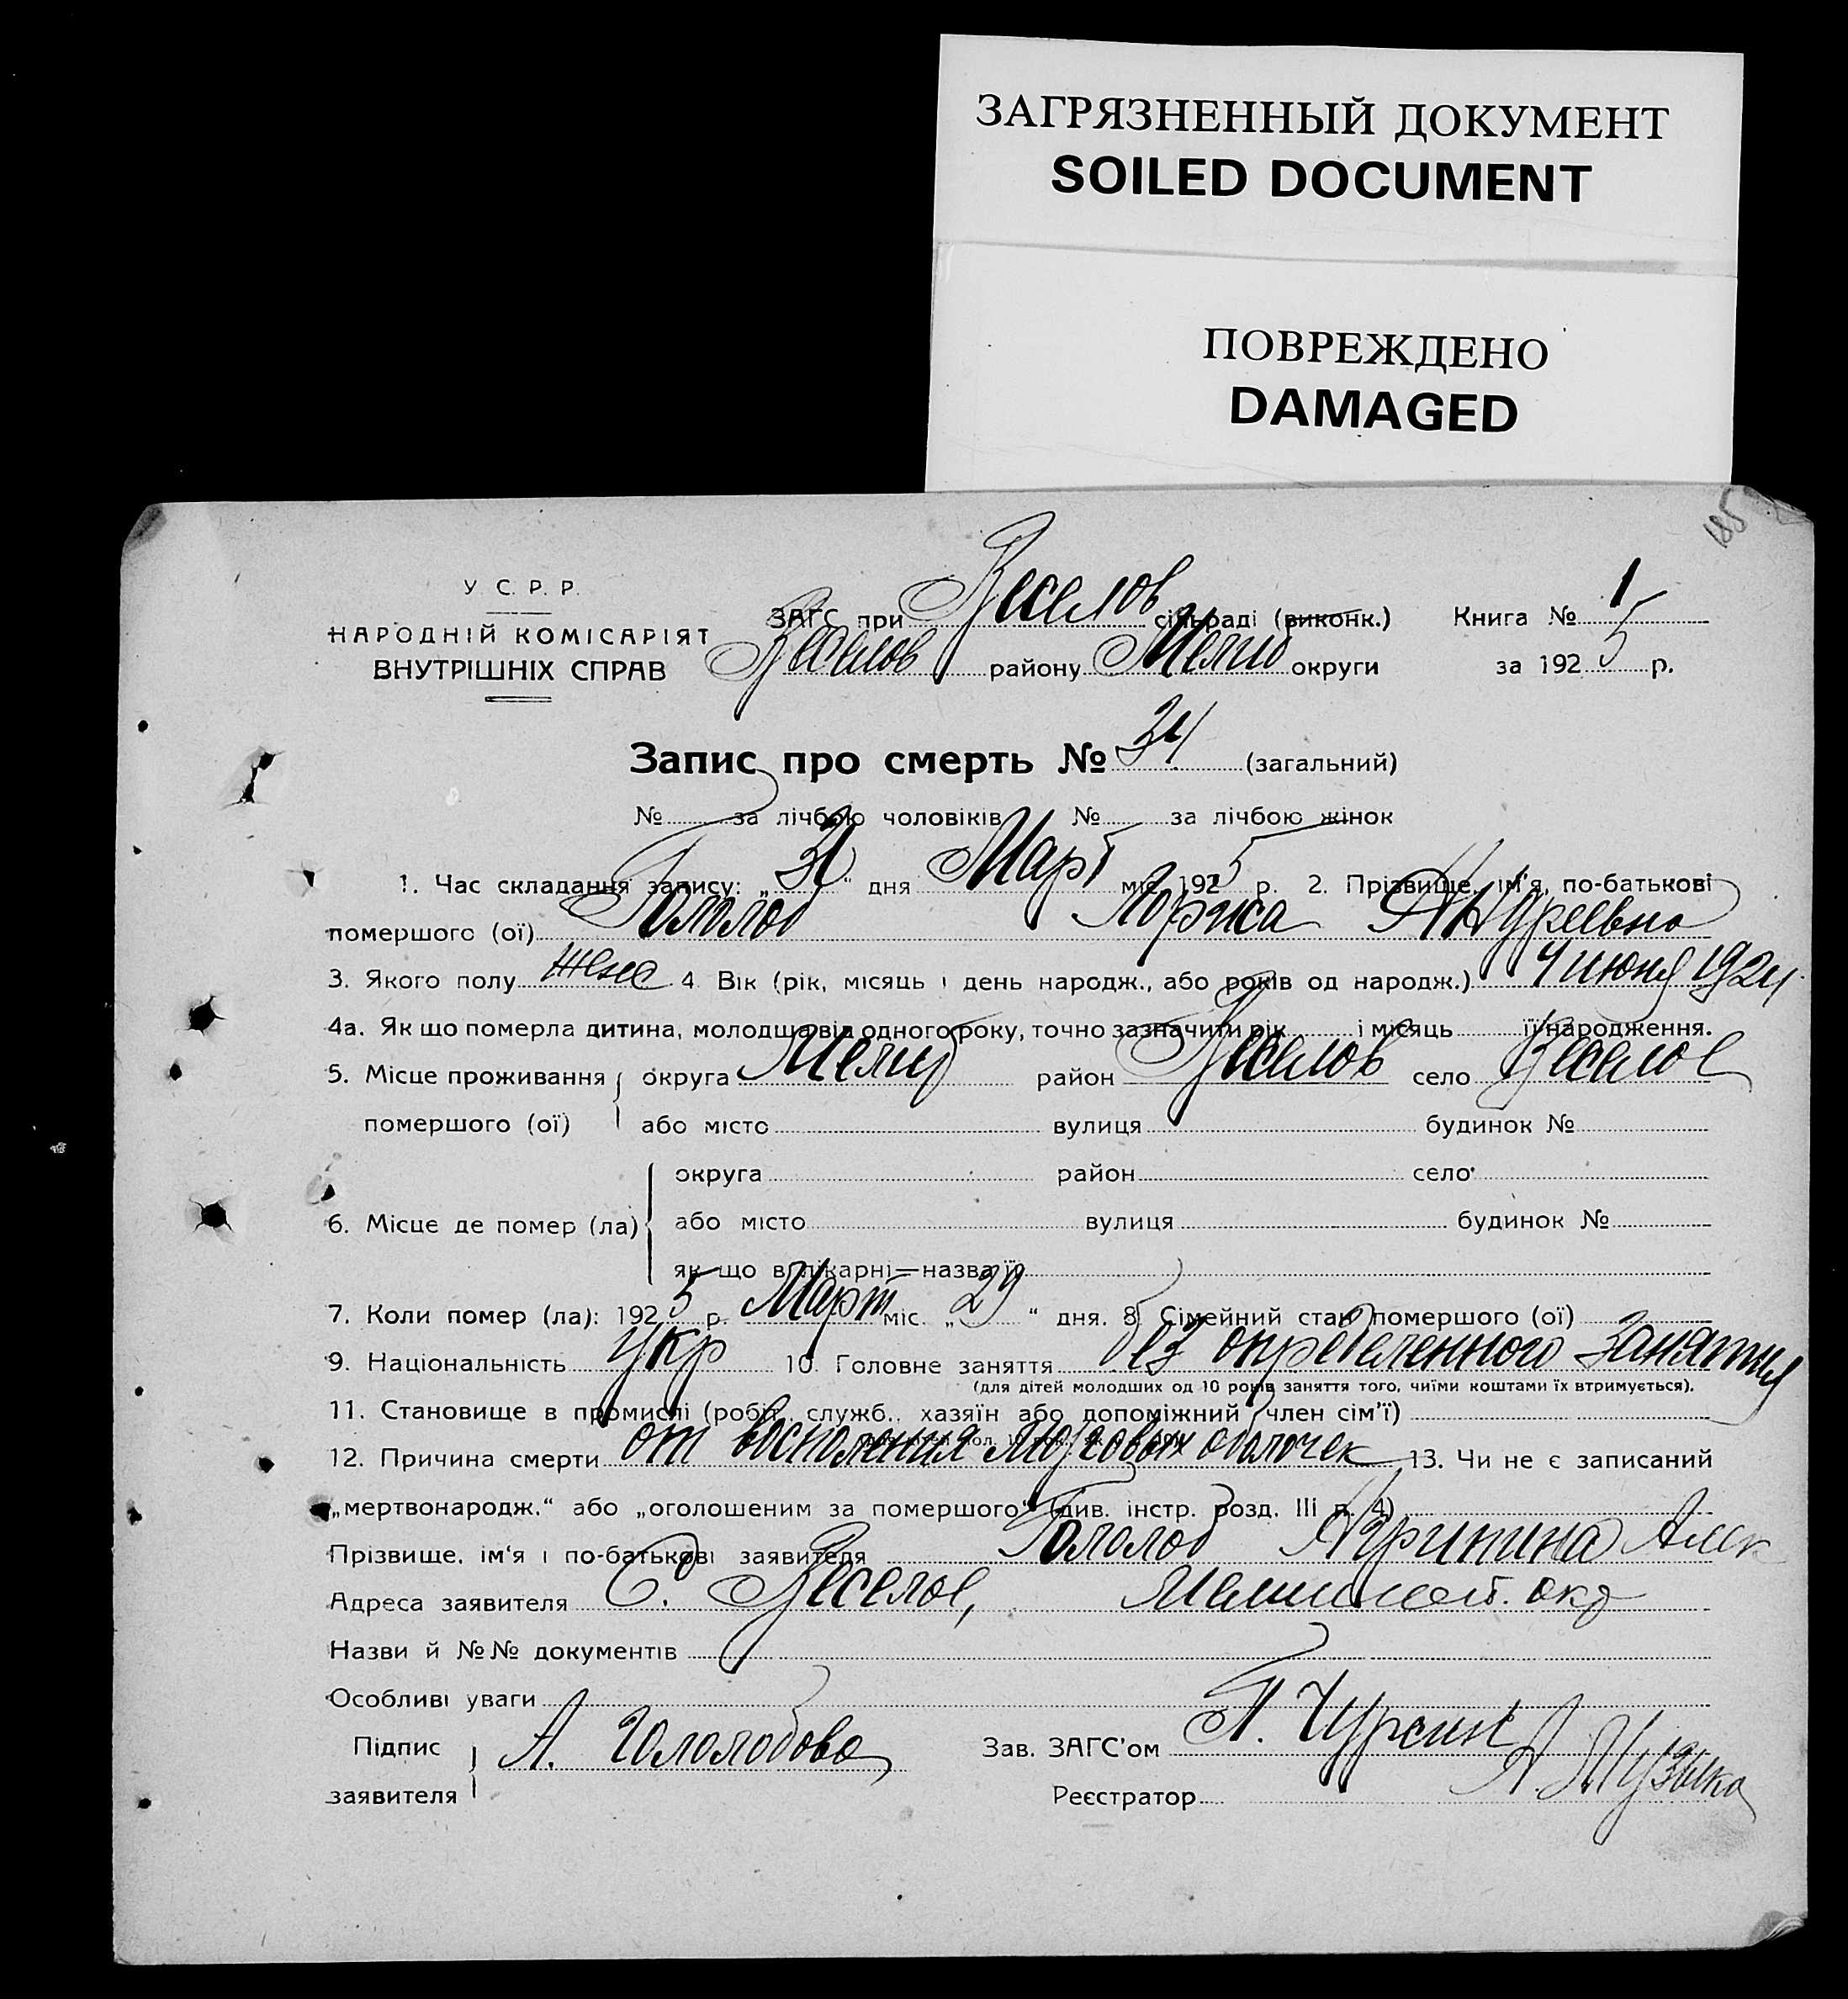 ЗАГРЯЗНЕННЫЙ ДОКУМЕНТ
SOILED DOCUMENT
ПОВРЕЖДЕНО
DAMAGED
185
У. С. Р. Р.
НАРОДНІЙ КОМІСАРІЯТ
ВНУТРІШНІХ СПРАВ
ЗАГС при Веселов сільраді (виконк.) Книга № 1
Веселов району Мелит округи за 1925 р.
Запис про смерть № 34 (загальний)
№ за лічбою чоловіків № за лічбою жінок
1. Час складання запису: „31“ дня Март міс. 1925 р. 2. Прізвище, ім'я, по-батькові
помершого (ої) Гололоб Андреевна
3. Якого полу жен 4. Вік (рік, місяць і день народж., або років од народж.) 4 июня 1924
4а. Як що померла дитина, молодша від одного року, точно зазначити рік і місяць її народження.
5. Місце проживання округа Мелит район Веселов село Веселое
помершого (ої) або місто вулиця будинок №
округа район село
6. Місце де помер (ла) або місто вулиця будинок №
як що в лікарні—назва її
7. Коли помер (ла): 1925 р. Март міс. „29“ дня. 8. Сімейний стан помершого (ої)
9. Національність укр 10. Головне заняття без определенного занятия
(для дітей молодших од 10 років заняття того, чиїми коштами їх втримується).
11. Становище в промислі (робітн., служб., хазяїн або допоміжний член сім'ї)
12. Причина смерти от воспаления мозговых оболочек 13. Чи не є записаний
„мертвонародж.“ або „оголошеним за помершого“ (див. інстр. розд. III п. 4)
Прізвище, ім'я і по-батькові заявителя Гололоб Алек
Адреса заявителя С. Веселое, Мелитопольск. окр
Назви й №№ документів
Особливі уваги
Підпис А. Гололобова Зав. ЗАГС'ом
заявителя Реєстратор А. Музыка